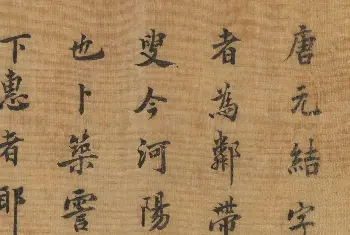 唐元結字
者為鄰帶
叟今河陽
也卜築霅
下惠者耶